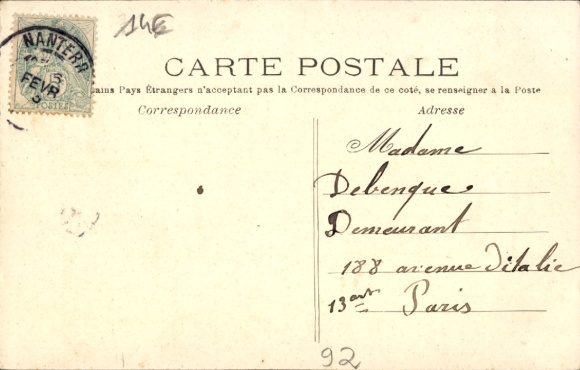 14E
NANTERR
5
FEVR
5
POSTES
CARTE POSTALE
tains Pays Étrangers n'acceptant pas la Correspondance de ce coté, se renseigner à la Poste
Correspondance
Adresse
Madame
Debenque
Demeurant
188 avenue d'italie
13ent Paris
92